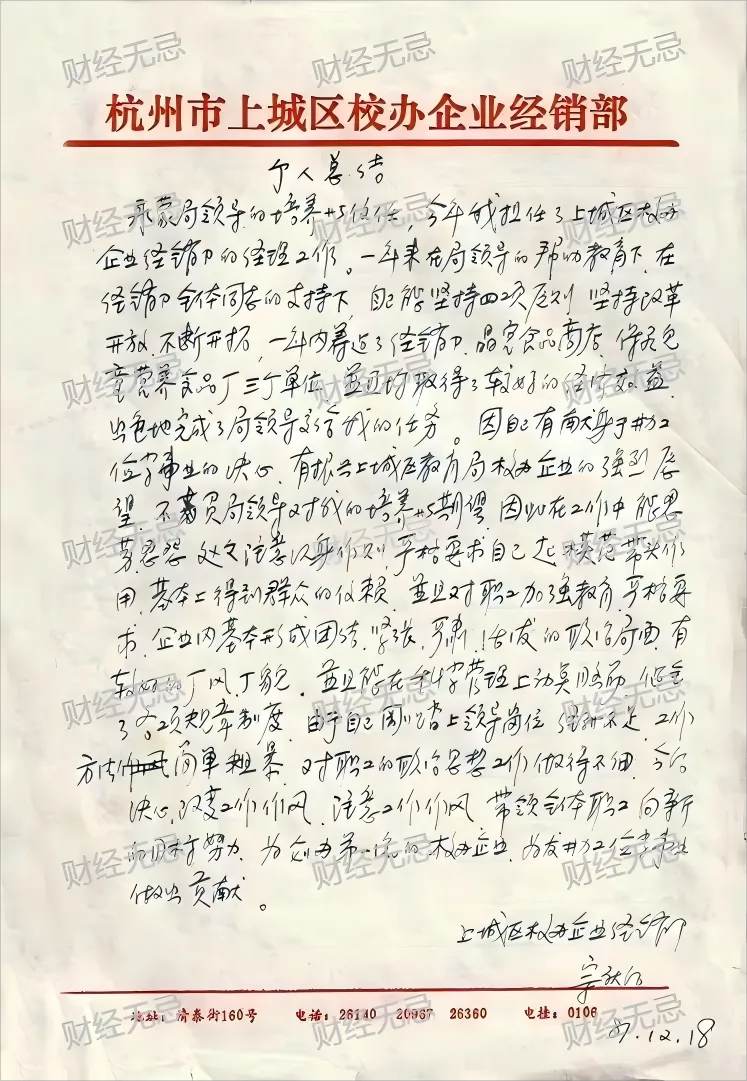 杭州市上城区校办企业经销部
个人总结
承蒙局领导的培养与信任,今年我担任了上城区校办
企业经销部的经理工作。一年来在局领导的帮助教育下,在
经销部全体同志的支持下,自己能坚持四项原则,坚持改革
开放,不断开拓,一年内筹建了经销部、晶宝食品商店、保灵儿
童营养食品厂三个单位,并且均取得了较好的经济效益,
出色地完成了局领导交给我的任务。因自己有献身于校办工
业事业的决心,有振兴上城区教育局校办企业的强烈愿
望,不辜负局领导对我的培养与期望,因此在工作中能思
劳忍怨,处处注意以身作则,严格要求自己,起模范带头作
用,基本上得到群众的信赖,并且对职工加强教育,严格要
求,企业内基本形成团结、紧张、严肃、活泼的政治局面,有
较好的厂风厂貌,并且能在科学管理上动真脑筋,健全
了各项规章制度,由于自己刚踏上领导岗位,经验不足,工作
方法简单粗暴,对职工的政治思想工作做得不细,今后
决心改变工作作风,注意工作作风,带领全体职工向新
的目标努力,为创办第一流的校办企业,为校办工业事业
做出贡献。
上城区校办企业经销部
宗庆后
地址:清泰街160号 电话:26140 20967 26360 电挂:0106
87.12.18
财经无忌